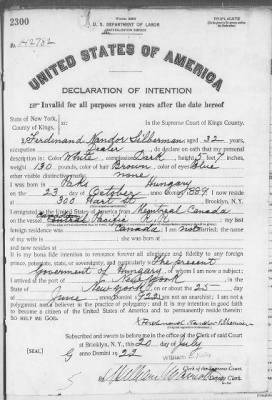 2300
U. S. DEPARTMENT OF LABOR
NATURALIZATION SERVICE
TRIPLICATE
No. 42782
UNITED STATES OF AMERICA
DECLARATION OF INTENTION
Invalid for all purposes seven years after the date hereof
State of New York,
County of Kings,
In the Supreme Court of Kings County.
I, Ferdinand Nandor Silberman aged 32 years,
occupation do declare on oath that my personal
description is: Color White, complexion Dark, height 5 feet 7 inches,
weight 130 pounds, color of hair Brown, color of eyes Blue
other visible distinctive marks none
I was born in Paks Hungary
on the 23 day of October I now reside
at 300 Hart St Brooklyn, N.Y.
I emigrated to the United States of America from Montreal Canada
on the vessel Pacific my last
foreign residence was Canada I am not married; the name
of my wife is ; she was born at
and now resides at
It is my bona fide intention to renounce forever all allegiance and fidelity to any foreign
prince, potentate, state, or sovereignty, and particularly to The present
Government of Hungary, of whom I am now a subject;
I arrived at the port of New York in the
State of New York on or about the 25 day
of June anno Domini 1922; I am not an anarchist; I am not a
polygamist nor a believer in the practice of polygamy; and it is my intention in good faith
to become a citizen of the United States of America and to permanently reside therein:
SO HELP ME GOD.
Ferdinand Nandor Silberman
Subscribed and sworn to before me in the office of the Clerk of said Court
at Brooklyn, N.Y., this 20 day of July
[SEAL] anno Domini 1922
Clerk of the Supreme Court.
Clerk.